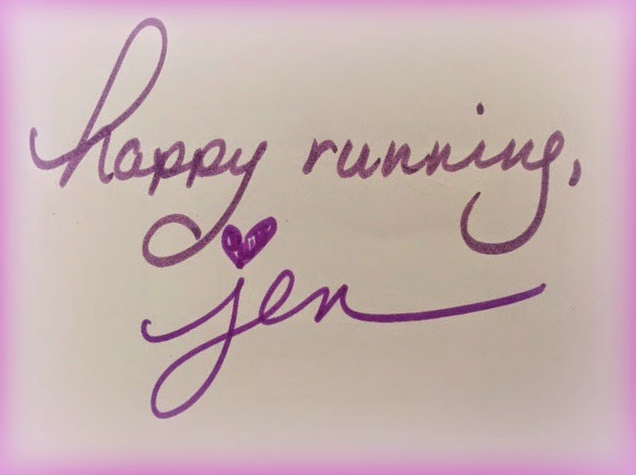 happy running,
jen